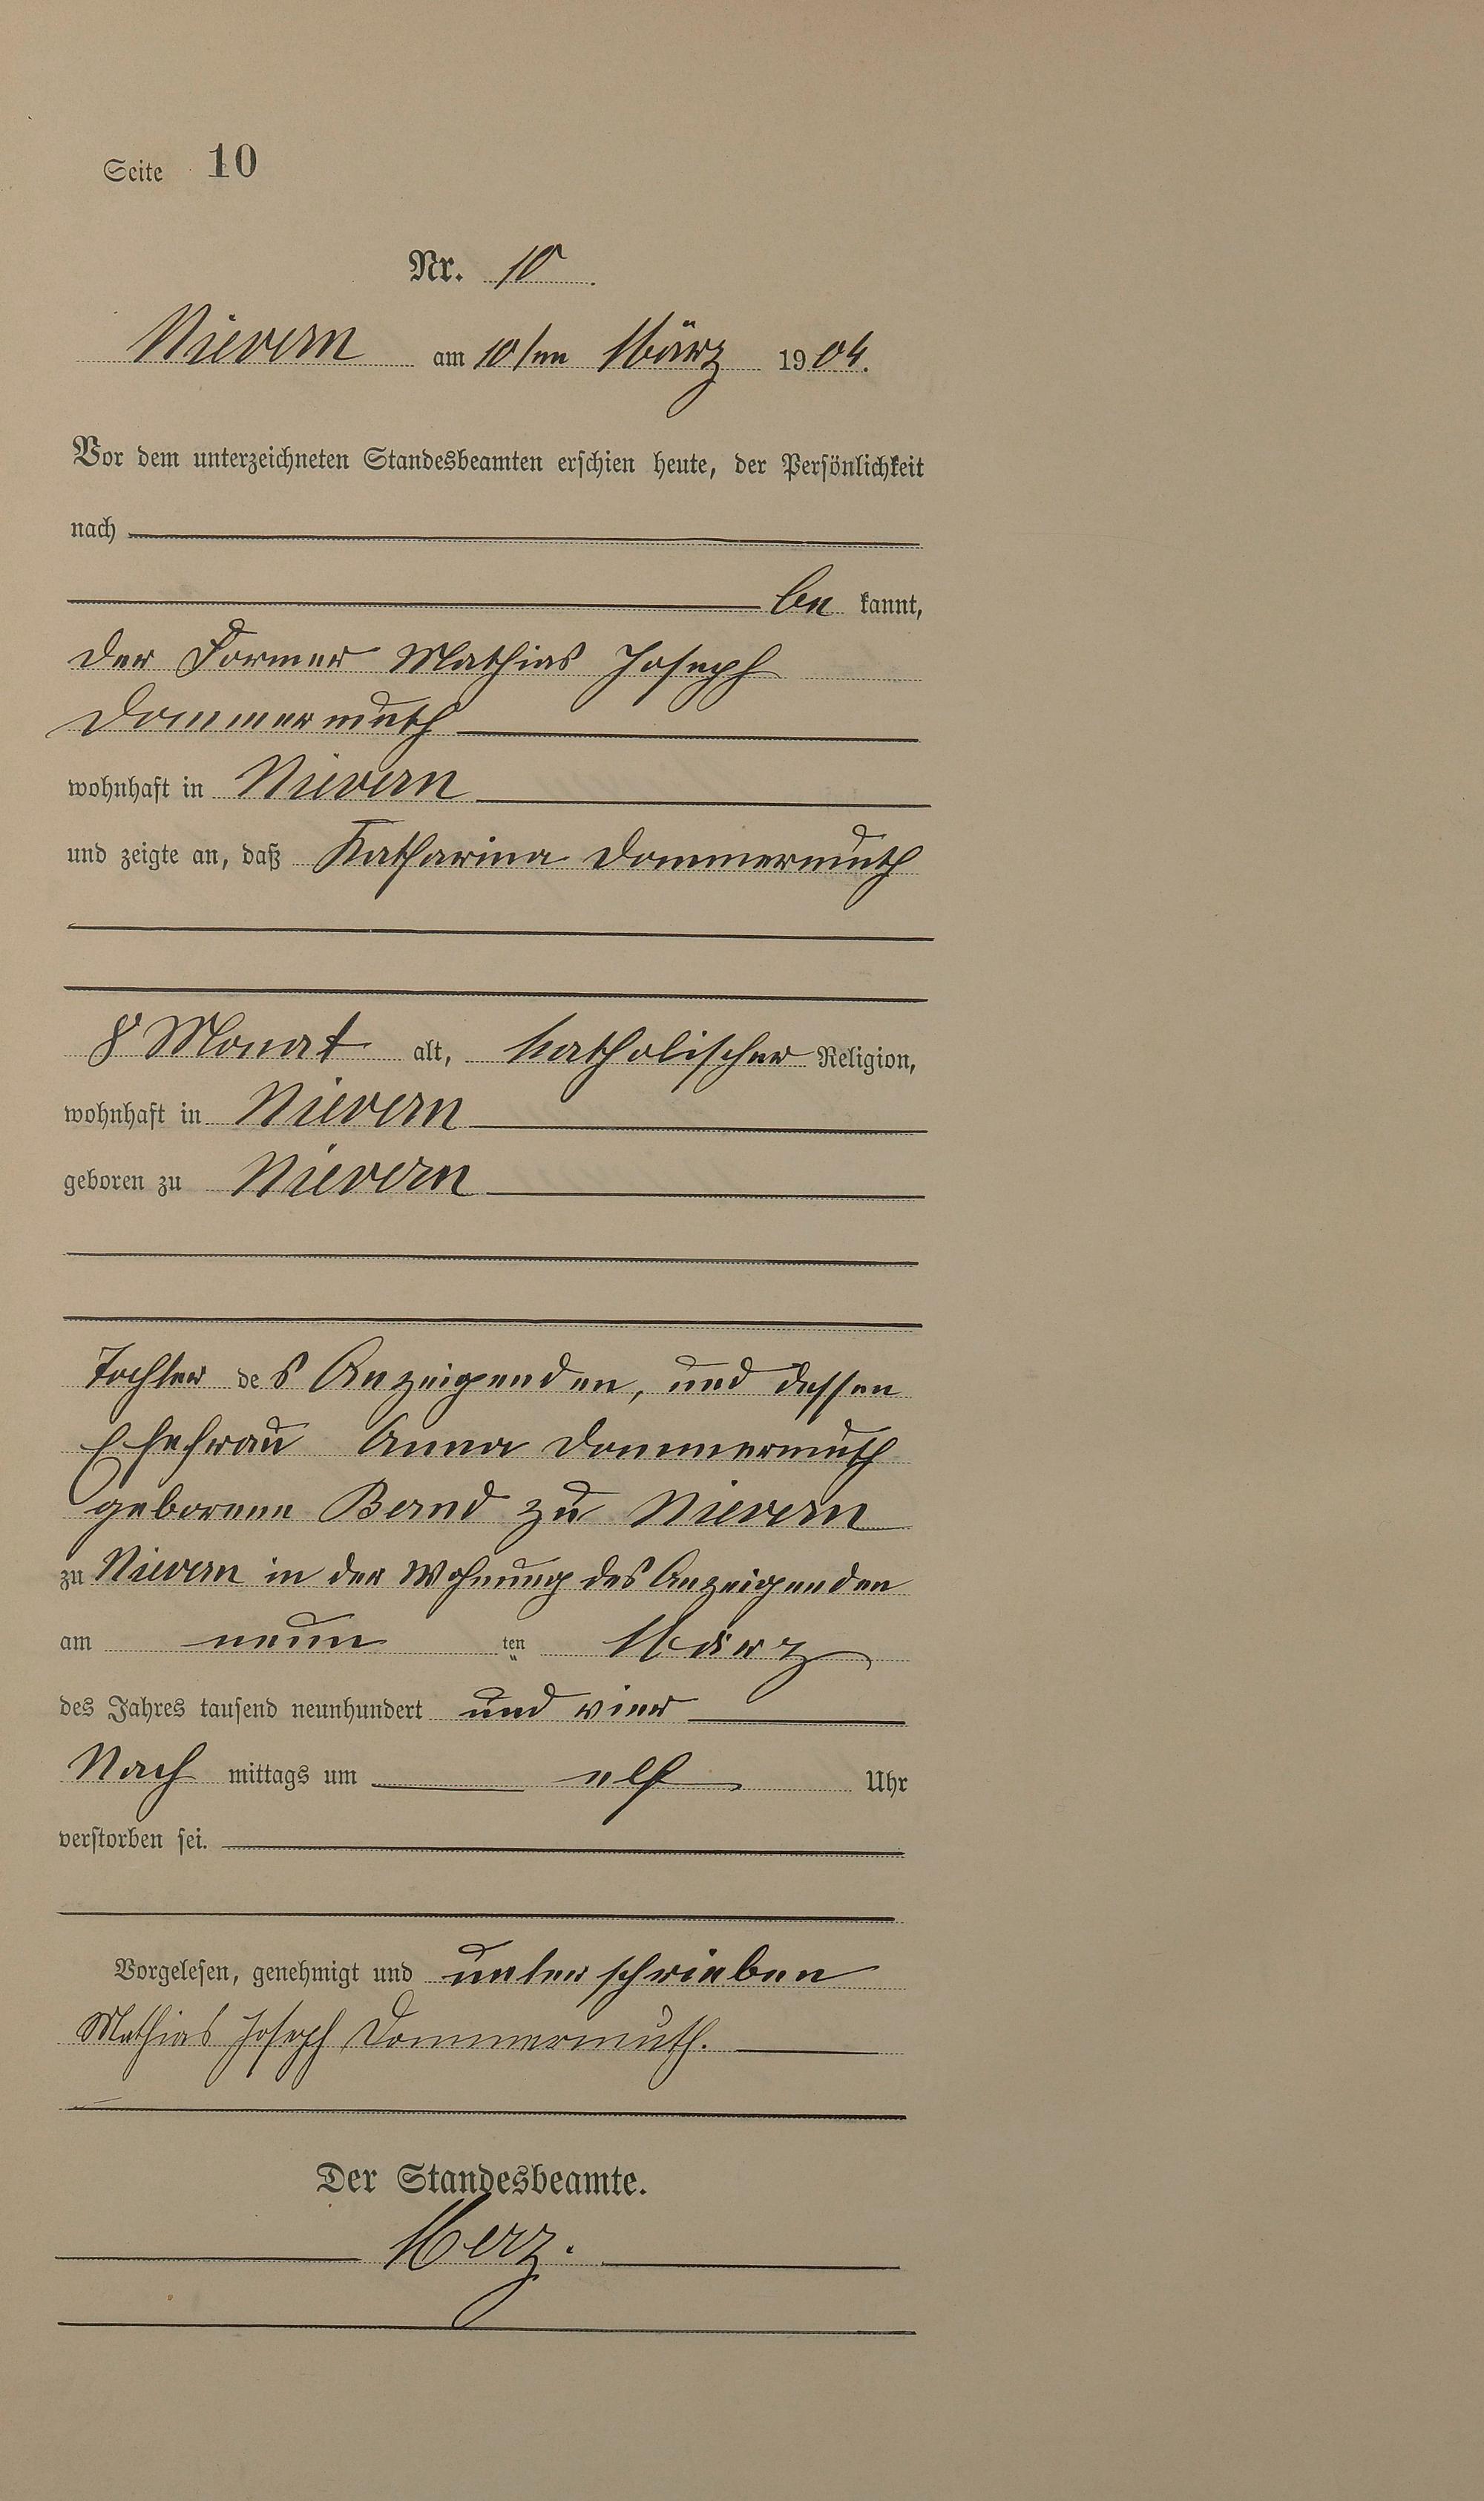 Seite 10
Nr. 10.
Nievern am 10ten März 1904.
Vor dem unterzeichneten Standesbeamten erschien heute, der Persönlichkeit
nach
be kannt,
der Former Mathias Joseph
Dommermuth
wohnhaft in Nievern
und zeigte an, daß Katharina Dommermuth
8 Monat alt, katholischer Religion,
wohnhaft in Nievern
geboren zu Nievern
Tochter des Anzeigenden, und dessen
Ehefrau Anna Dommermuth
geborene Band zu Nievern
zu Nievern in der Wohnung des Anzeigenden
am neun ten März
des Jahres tausend neunhundert und vier
Nach mittags um elf Uhr
verstorben sei.
Vorgelesen, genehmigt und unterschrieben
Mathias Joseph Dommermuth.
Der Standesbeamte.
Herz.